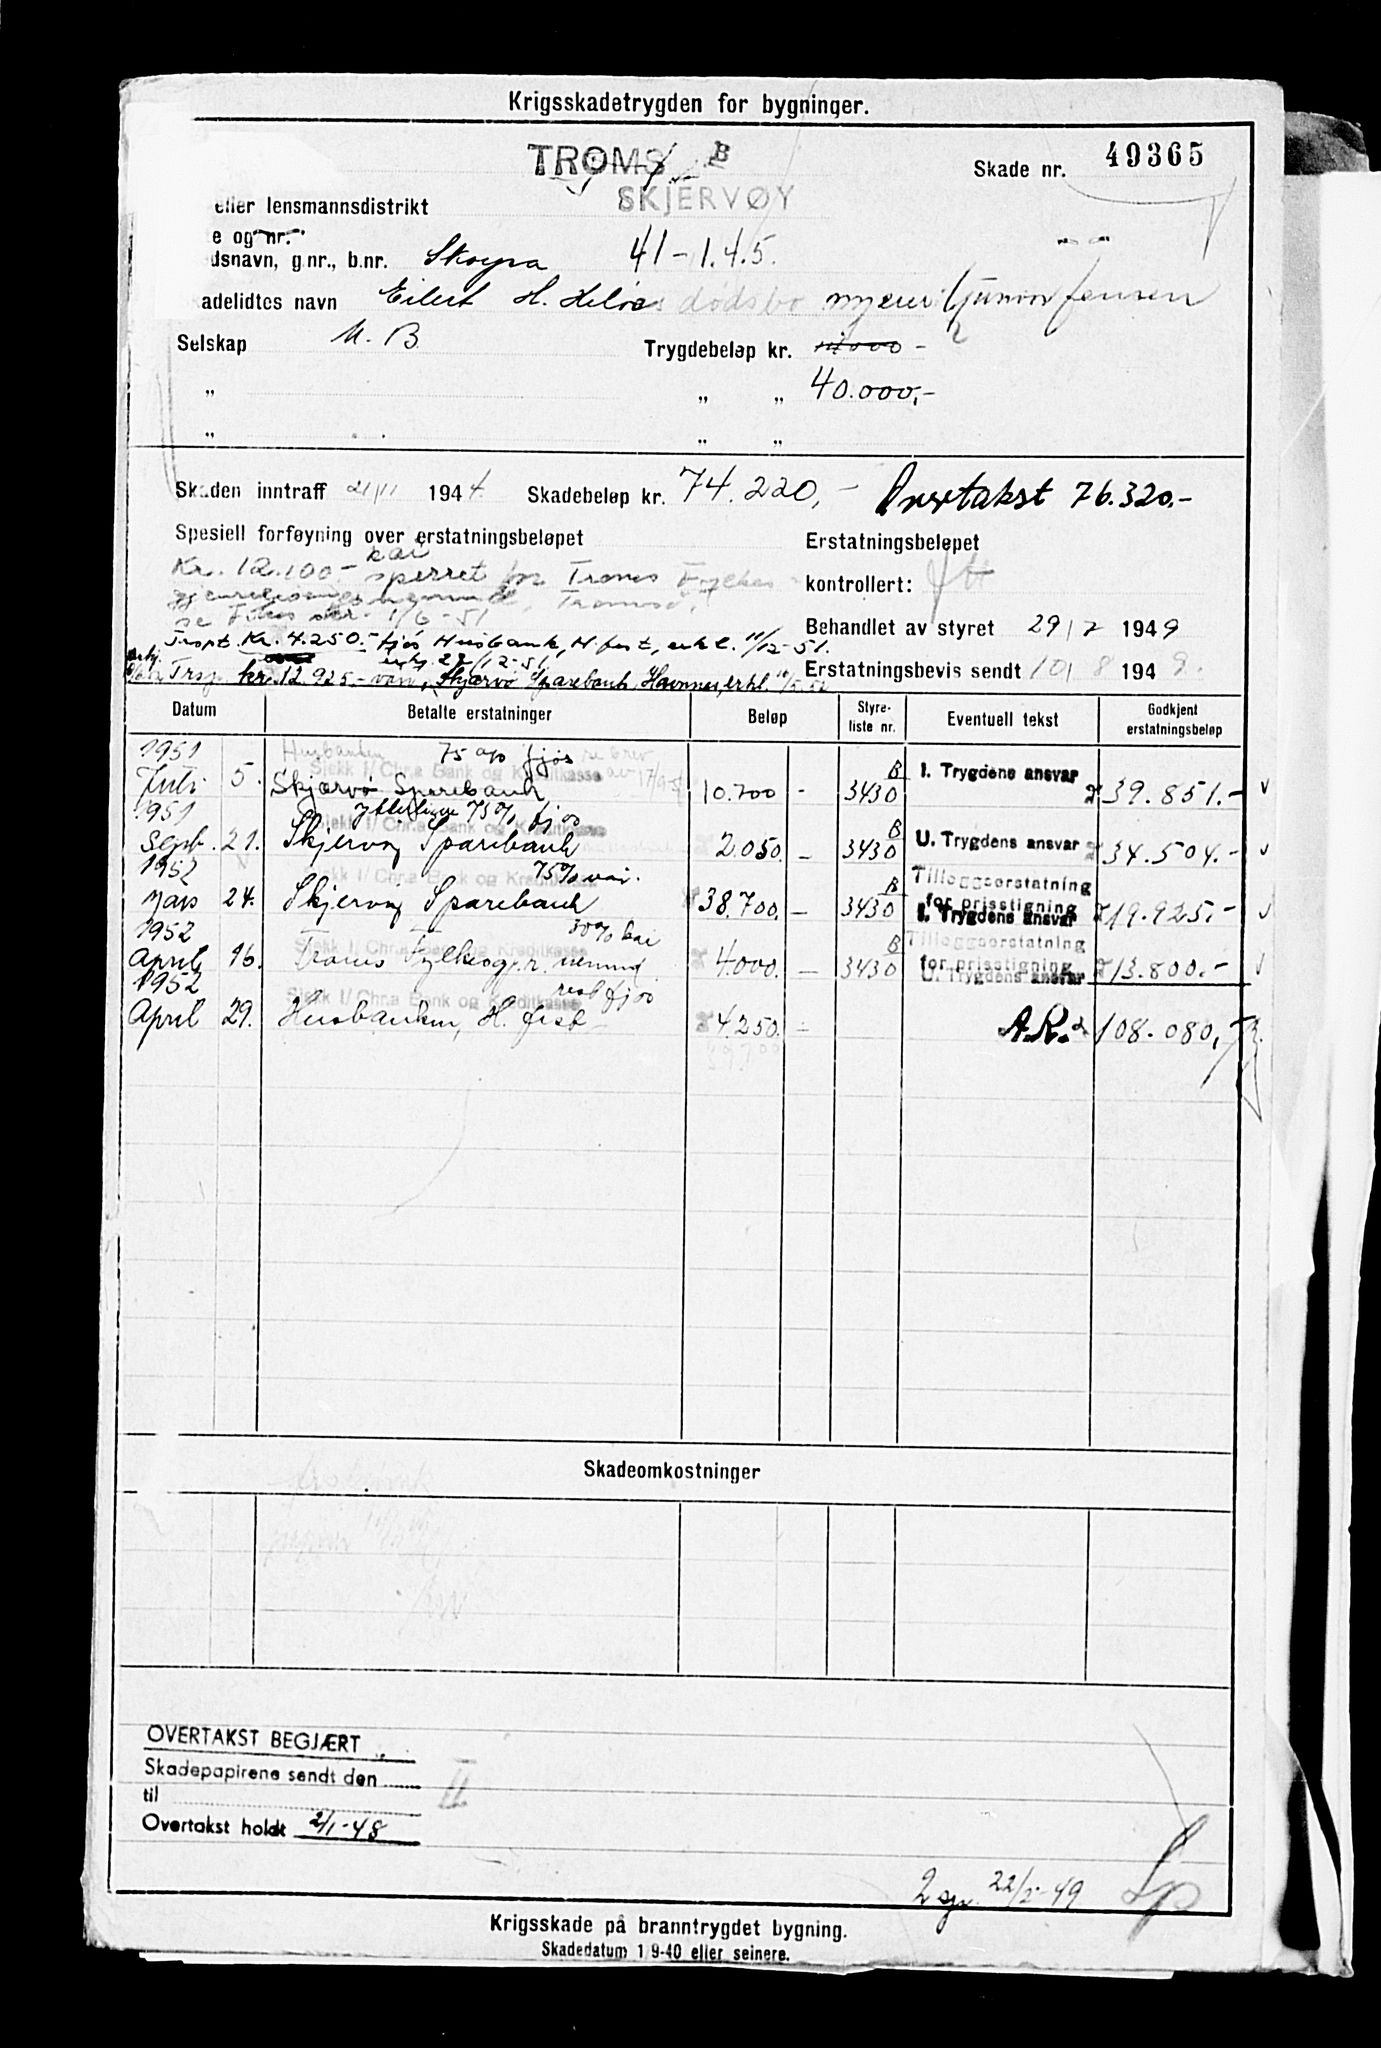 Krigsskadetrygden for bygninger.
TROMS B
Skade nr. 49365
SKJERVØY
eller lensmannsdistrikt
e og nr.
dsnavn, g.nr., b.nr. 41 - 1.4.5.
adelidtes navn Eilert H. dødsbo
Selskap M. B. Trygdebeløp kr.
" " " 40.000,-
" " "
Skaden inntraff 21/11 1944. Skadebeløp kr. 74.220,- Overtakst 76.320.-
Spesiell forføyning over erstatningsbeløpet Erstatningsbeløpet
kai
Kr. 12.100.- sperret for Troms Fylkes
kontrollert:
Tromsø,
1/6-51
Behandlet av styret 29/7 1949
Trspt. Kr. 4.250.- fjøs Husbank, H.fest, erkl. 11/12-51.
Erstatningsbevis sendt 10/8 1949.
kr. 12.925.- Skjærvø Sparebank, Havnnes, erkl.
Datum Betalte erstatninger Beløp Styre-liste nr. Eventuell tekst Godkjent erstatningsbeløp
1951 Husbanken 75% fjøs se brev av 17/9-51
Sjekk I/ Chr.a Bank og Kreditkasse
Juli 5. Skjærvø Sparebank 10.700 - B 3430 I. Trygdens ansvar 39.851.-
1951 75% fjøs
Sjekk I/ Chr.a Bank og Kreditkasse
Sept. 21. Skjervøy Sparebank 2.050. - B 3430 U. Trygdens ansvar 34.504.-
1952 75%
Sjekk I/ Chr.a Bank og Kreditkasse
mars 24. Skjervøy Sparebank 38.700. - B 3430 Tilleggserstatning for prisstigning I. Trygdens ansvar 19.925.-
1952 30% kai
Sjekk I/ Chr.a Bank og Kreditkasse
April 16. Troms Fylkes gj.r. nemnd 4.000. - B 3430 Tilleggserstatning for prisstigning U. Trygdens ansvar 13.800.-
1952 rest fjøs
Sjekk I/ Chr.a Bank og Kreditkasse
April 29. Husbanken, H. fest 4.250. - A.R. 108.080,-
59.700
Skadeomkostninger
OVERTAKST BEGJÆRT
Skadepapirene sendt den
II
til
Overtakst holdt 2/1-48
2 22/2-49
Krigsskade på branntrygdet bygning.
Skadedatum 1/9-40 eller seinere.